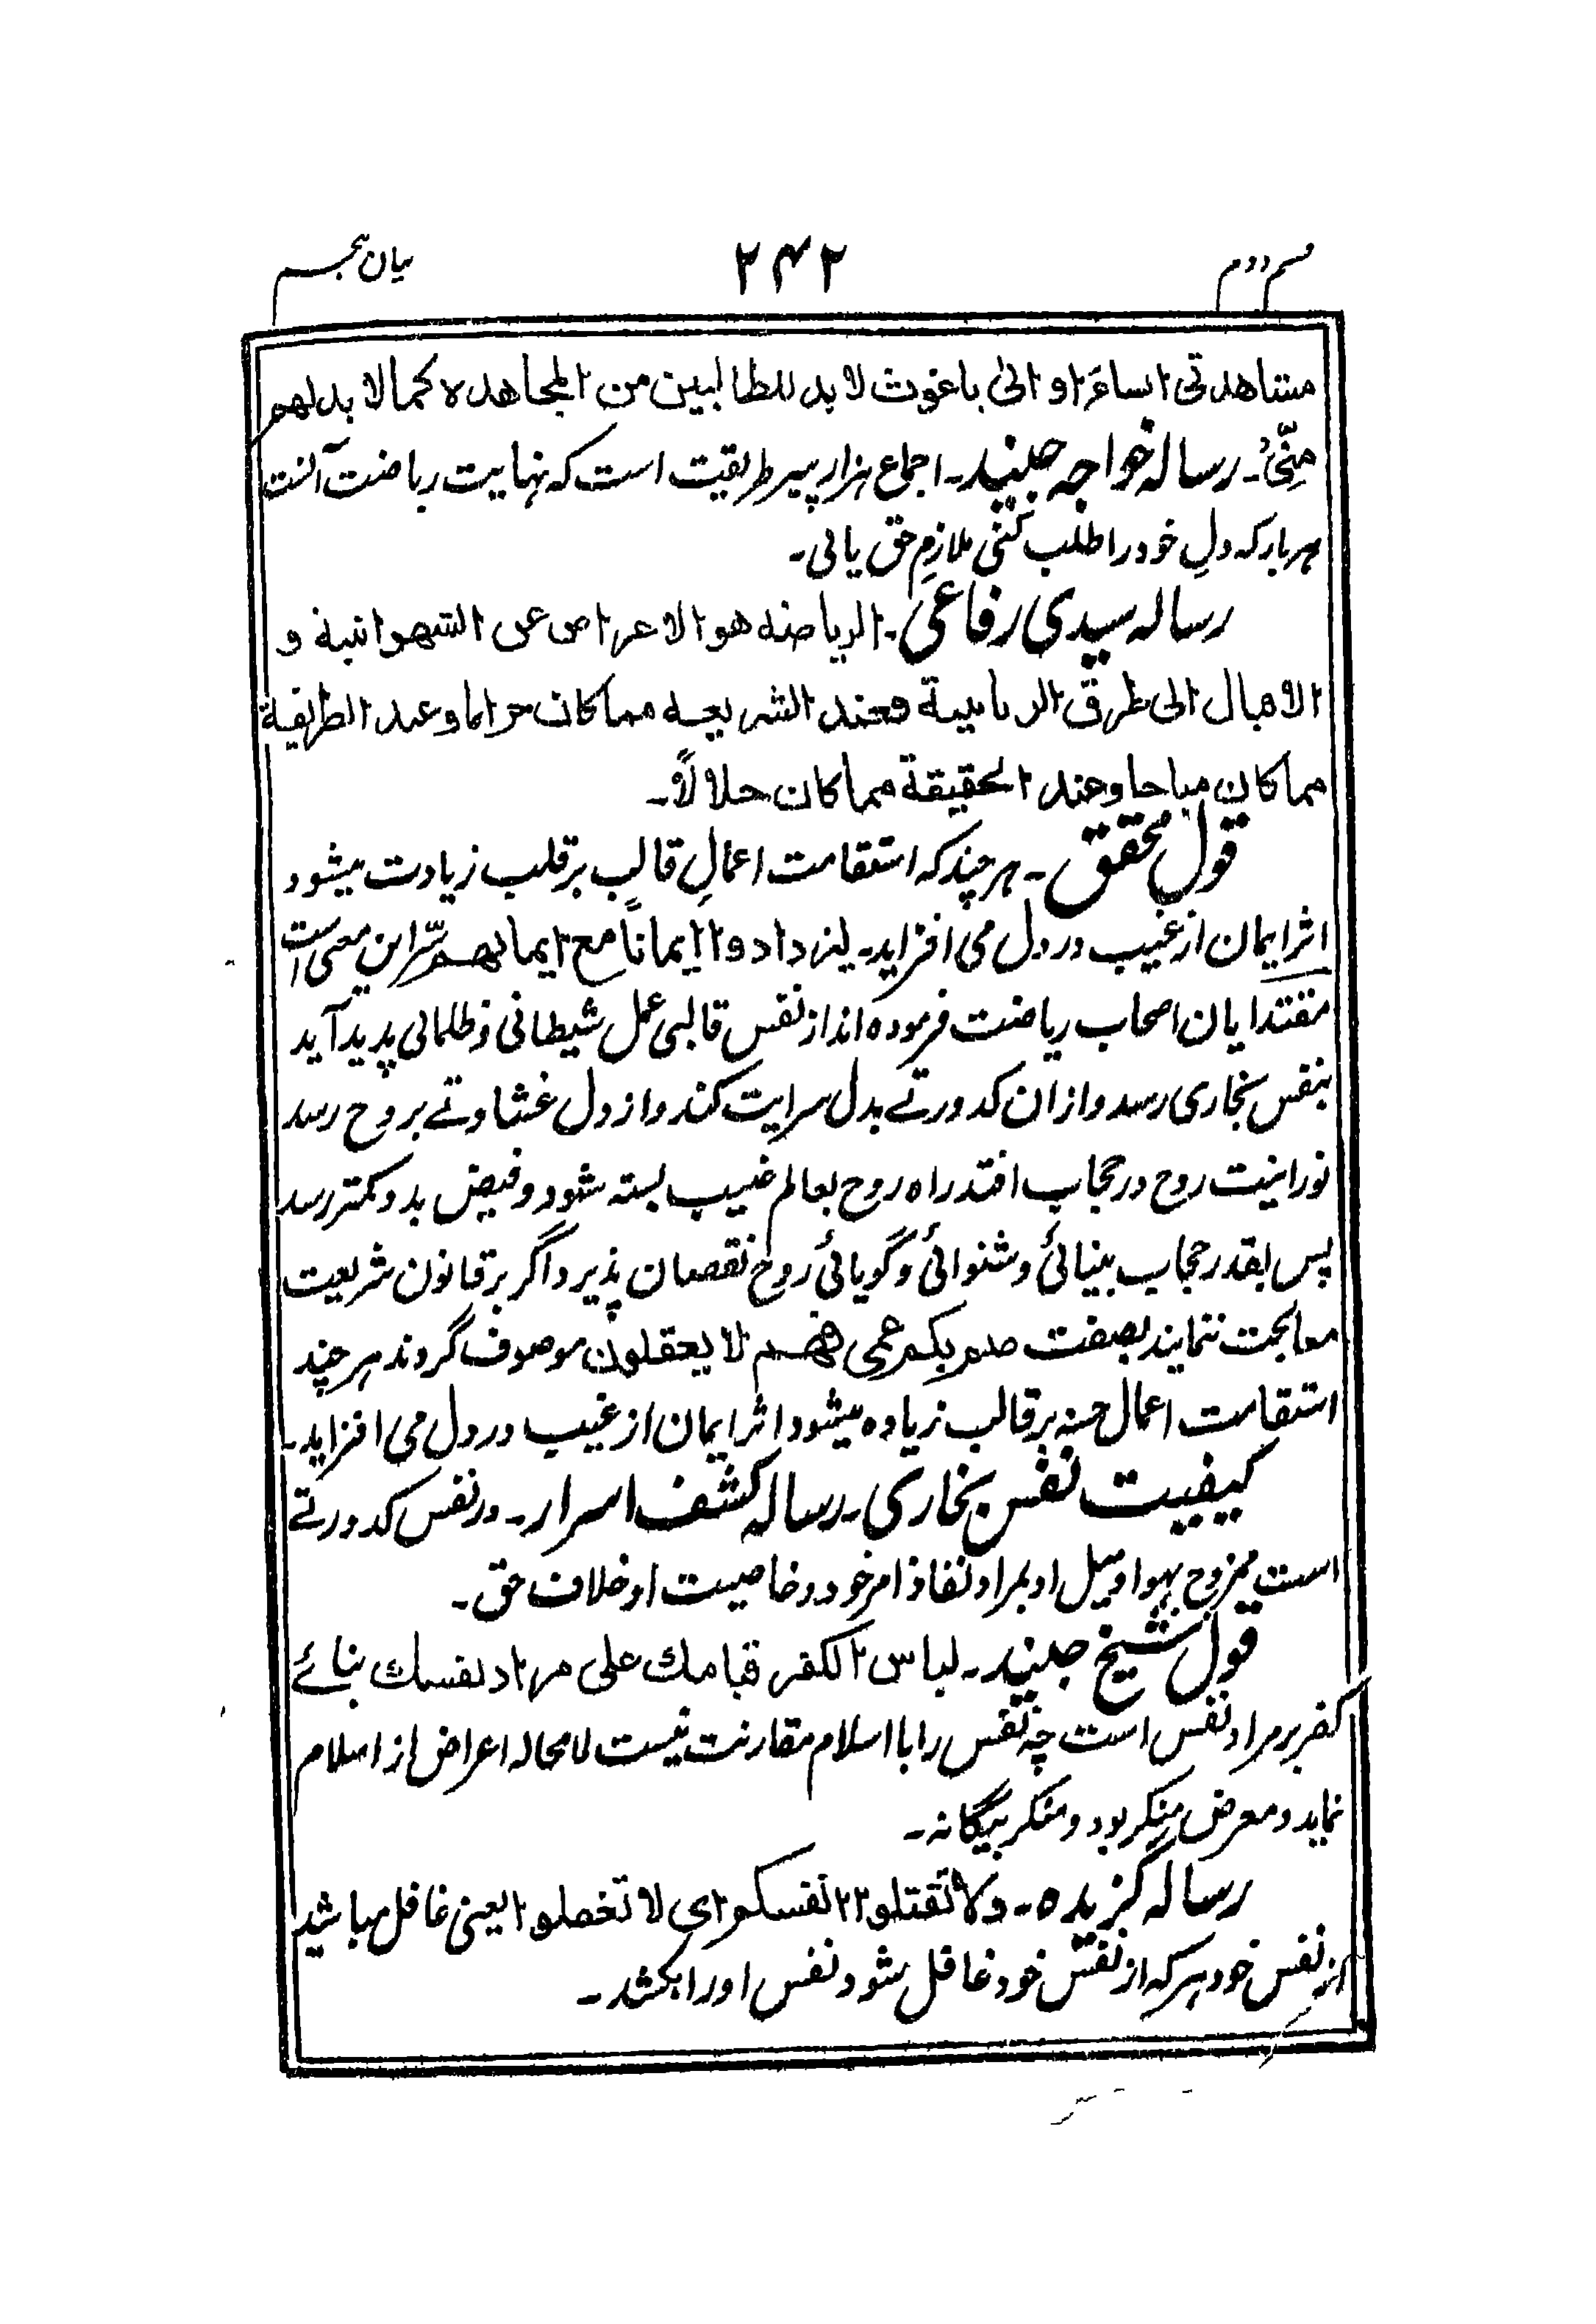 قسم دوم
۲۴۲
بیان پنجم
مشاهدتی ابساعراو الیٰ یاغوث لابد للطالبین من المجاهده کما لا بد لهم
مِنِّیْ۔ رسالہ خواجہ جنید۔ اجماع ہزار پیر طریقت است کہ نہایت ریاضت آنست
ہر بار کہ دلِ خود را طلب کنی ملازمِ حق یابی۔
رسالہ سیدی رفاعی۔ الریاضة هو الاعراض عن الشهوانیة و
الاقبال الی طرق الربانیة فعند الشریعه مما کان حراما و عند الطریقة
مما کان مباحا و عند الحقیقة مما کان حلالاً۔
قول محقق۔ ہر چند کہ استقامت اعمالِ قالب بر قلب زیادت میشود
اثر ایمان از غیب در دل می افزاید۔ لیزدادوا ایمانًا مع ایمانهم سرّ این معنی است
مقتدایان اصحاب ریاضت فرموده اند از نفس قالبی عمل شیطانی و ظلمانی پدید آید
بنفس بخاری رسد و ازان کدورتے بدل سرایت کند و از دل غشاوتے بروح رسد
نورانیت روح در حجاب افتد راه روح بعالم غیب بسته شود و فیض بدو کمتر رسد
پس بقدر حجاب بینائی و شنوائی و گویائی روح نقصان پذیرد اگر بر قانون شریعت
معالجت ننمایند بصفت صم بکم عمی فهم لا یعقلون موصوف گردند ہر چند
استقامت اعمال حسنہ بر قالب زیاده میشود اثر ایمان از غیب در دل می افزاید۔
کیفیت نفس بخاری۔ رسالہ کشف اسرار۔ در نفس کدورتے
است ممزوج بہوا و میل او بمراد نفاذ امر خود و خاصیت او خلاف حق۔
قول شیخ جنید۔ لباس الکفر قیامك علی مراد نفسك بنائے
کفر بر مراد نفس است چہ نفس را با اسلام مقارنت نیست لا محالہ اعراض از اسلام
نماید و معرض منکر بود و منکر بیگانہ۔
رسالہ گزیده۔ ولا تقتلوا انفسکم ای لا تغفلوا یعنی غافل مباشید
از نفس خود ہر کہ از نفس خود غافل شود نفس او را بکشد۔